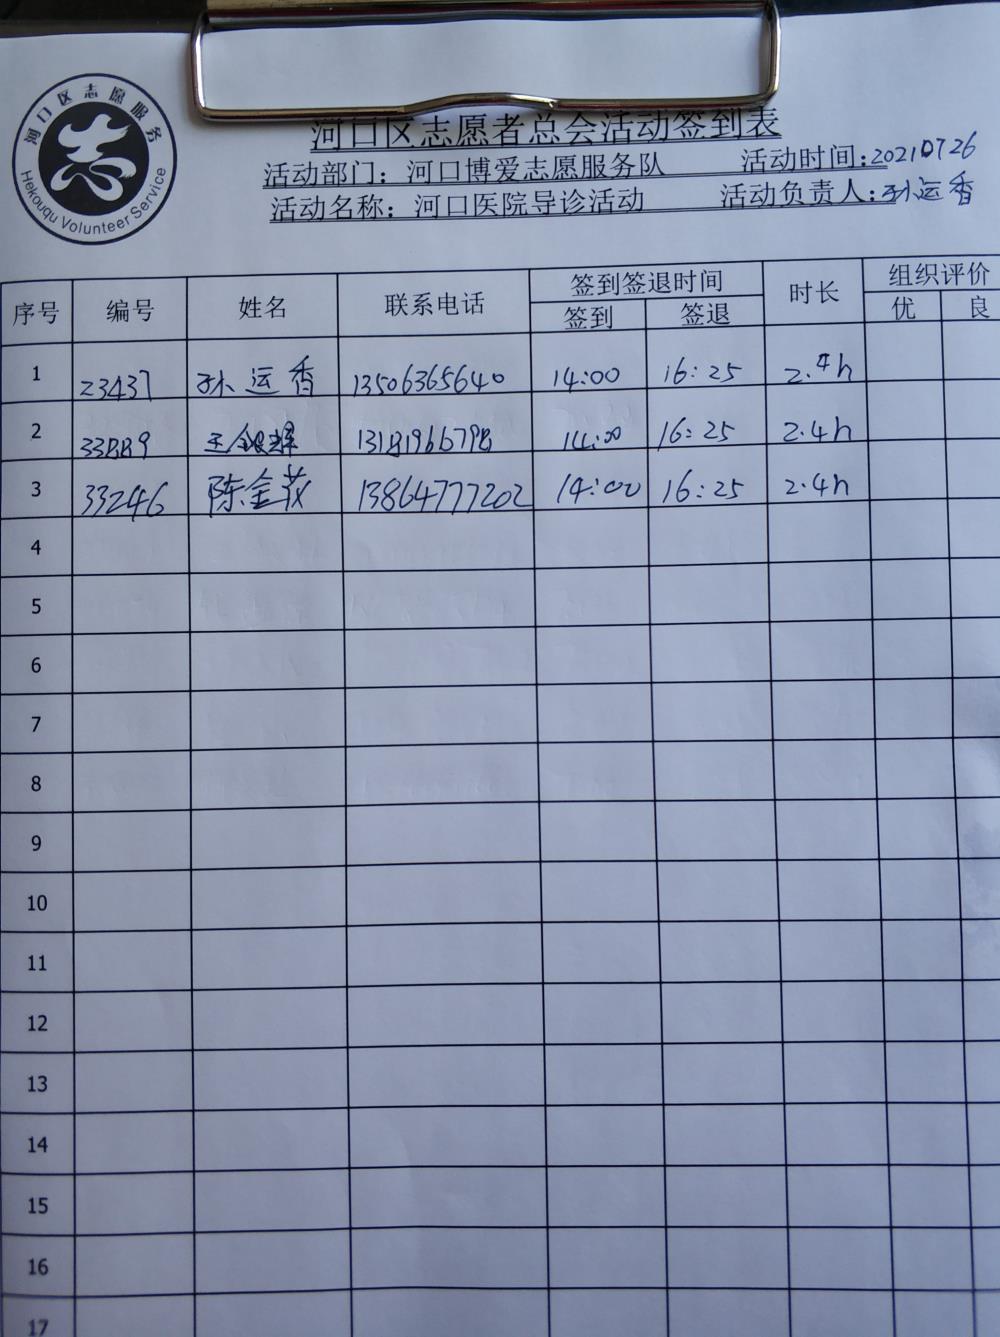 河口区志愿服务
Hekouqu Volunteer Service
河口区志愿者总会活动签到表
活动部门：河口博爱志愿服务队 活动时间：20210726
活动名称：河口医院导诊活动 活动负责人：孙运香
序号 编号 姓名 联系电话 签到签退时间 时长 组织评价
签到 签退 优 良
1 23437 孙运香 13506365640 14:00 16:25 2.4h
2 14:00 16:25 2.4h
3 33246 陈金花 13864777202 14:00 16:25 2.4h
4
5
6
7
8
9
10
11
12
13
14
15
16
17